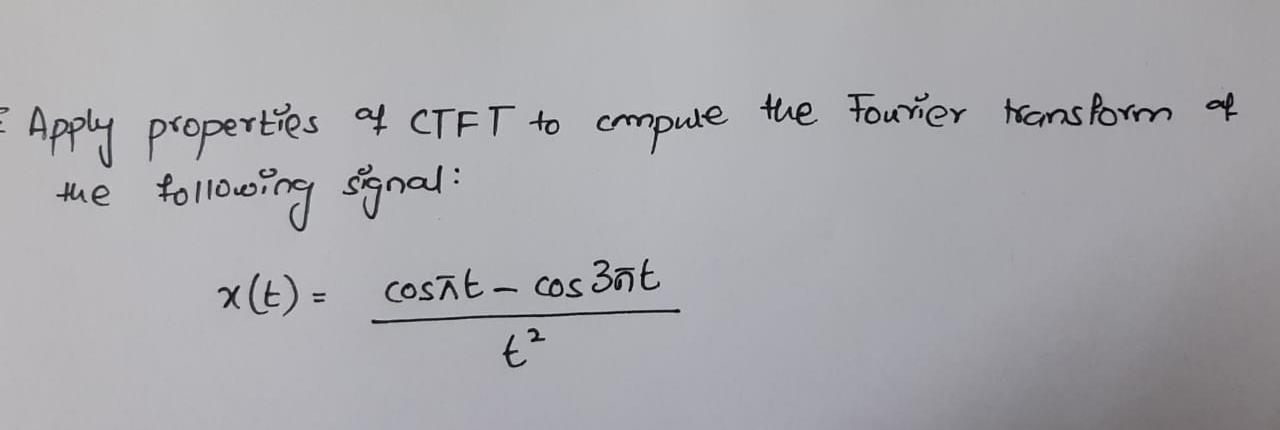 Apply properties of CTFT to compute the Fourier transform of
the following signal:
x(t) = cosπt - cos 3πt
t²